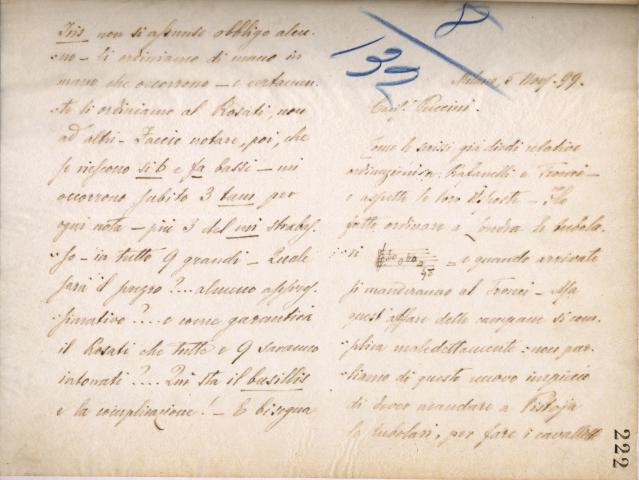 Iris non si assunse obbligo alcu-
no - li ordiniamo di mano in
mano che occorrono - e certamen-
te li ordiniamo al Rosati, non
ad altri - Faccio notare, poi, che
se riescono si b e fa bassi - mi
occorrono subito 3 tam per
ogni nota - più 3 del mi
so - in tutto 9 grandi - Quale
sarà il prezzo ?... almeno appros-
simativo ?.... e come garantirà
il Rosati che tutte e 9 saranno
intonati ?.... Qui sta il busillis
e la complicazione ! - E bisogna
8
132
Milano, 5 Nov. 99.
Car. Puccini.
Come le scrissi già diedi relative
ordinazioni a Rafanelli e Tronci -
e aspetto le loro risposte - Ho
fatto ordinare a Londra le tubola-
ri = e quando arrivate
si manderanno al Tronci - Ma
quest'affare delle campane si com-
plica maledettamente : non par-
liamo di questo nuovo impiccio
di dover mandare a Pistoja
le tubolari, per fare i cavalletti
222